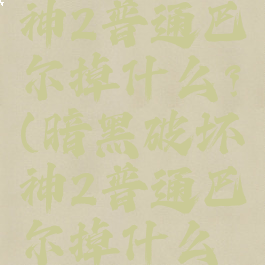 神2普通巴
尔掉什么?
(暗黑破坏
神2普通巴
尔掉什么